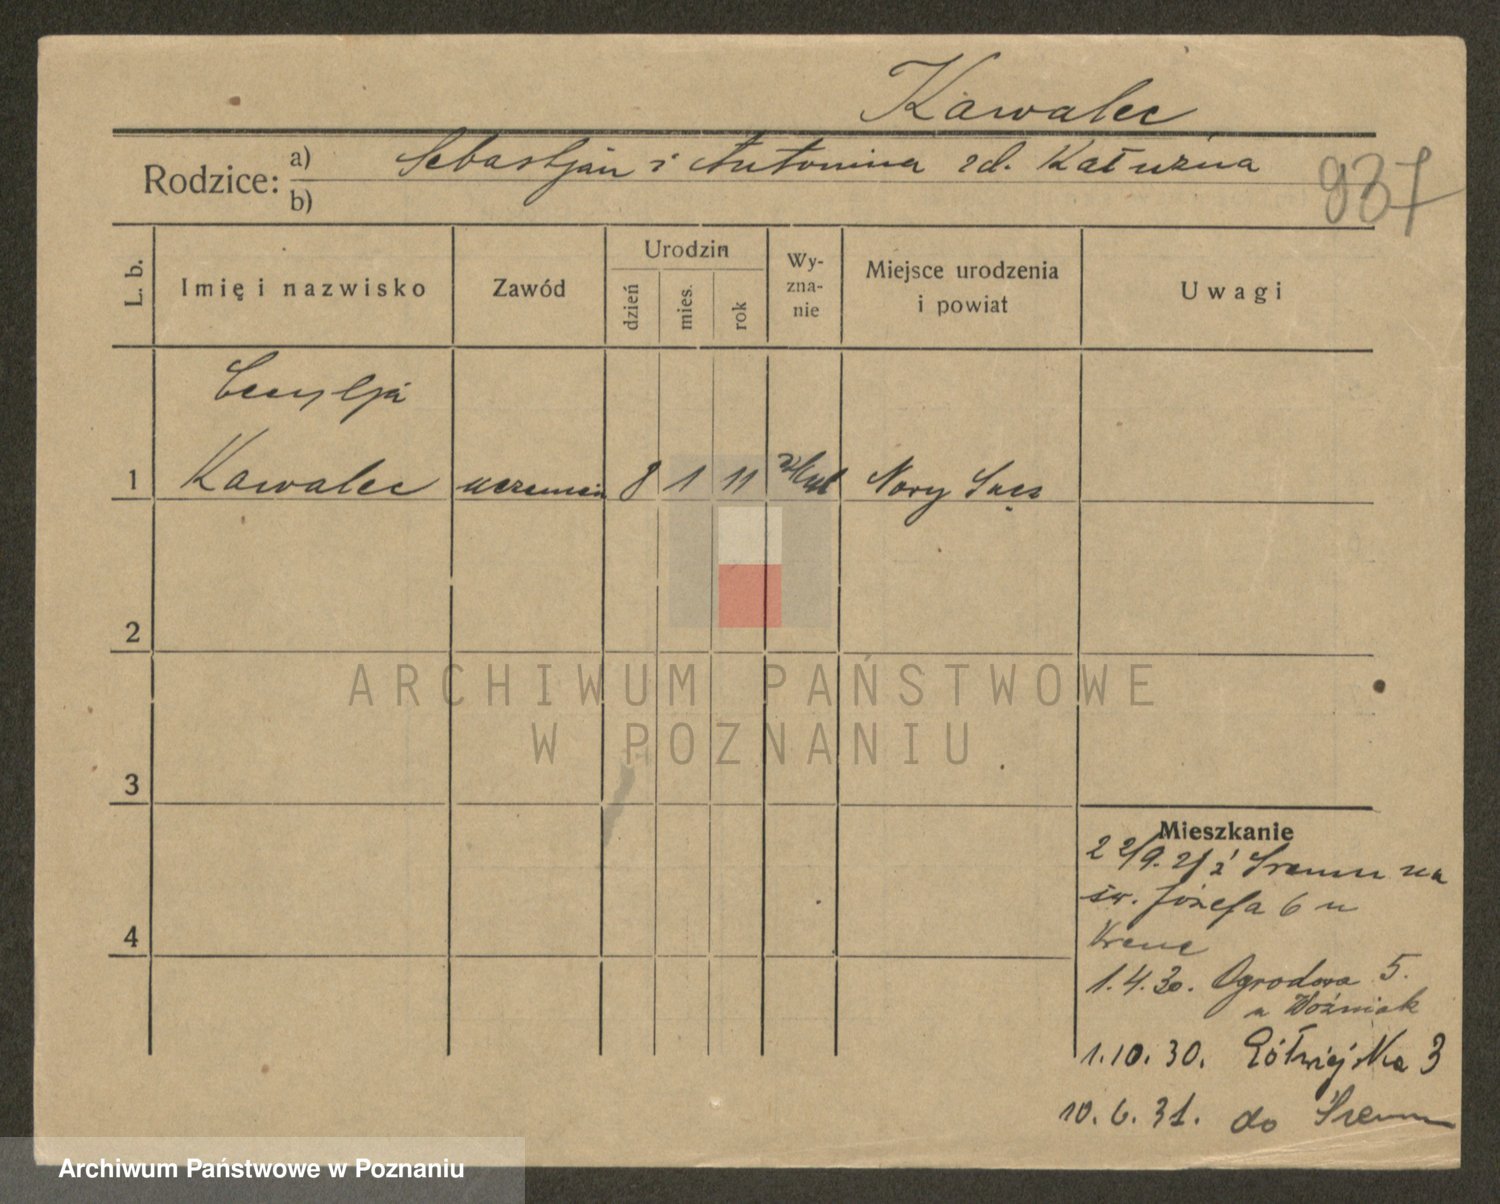 Kawalec
Rodzice: a) Sebastjan i Antonina zd. Kałużna
b)
937
L. b.
Imię i nazwisko
Zawód
Urodzin
dzień
mies.
rok
Wy-
zna-
nie
Miejsce urodzenia
i powiat
Uwagi
Cecylja
1 Kawalec uczennica 8 1 11 Nowy Sącz
2
3
4
ARCHIWUM PAŃSTWOWE
W POZNANIU
Mieszkanie
22/9. z Śremu na
św. Józefa 6 u
1.4.30. Ogrodowa 5.
u Woźniak
1.10.30. Półwiejska 3
10.6.31. do Śremu
Archiwum Państwowe w Poznaniu